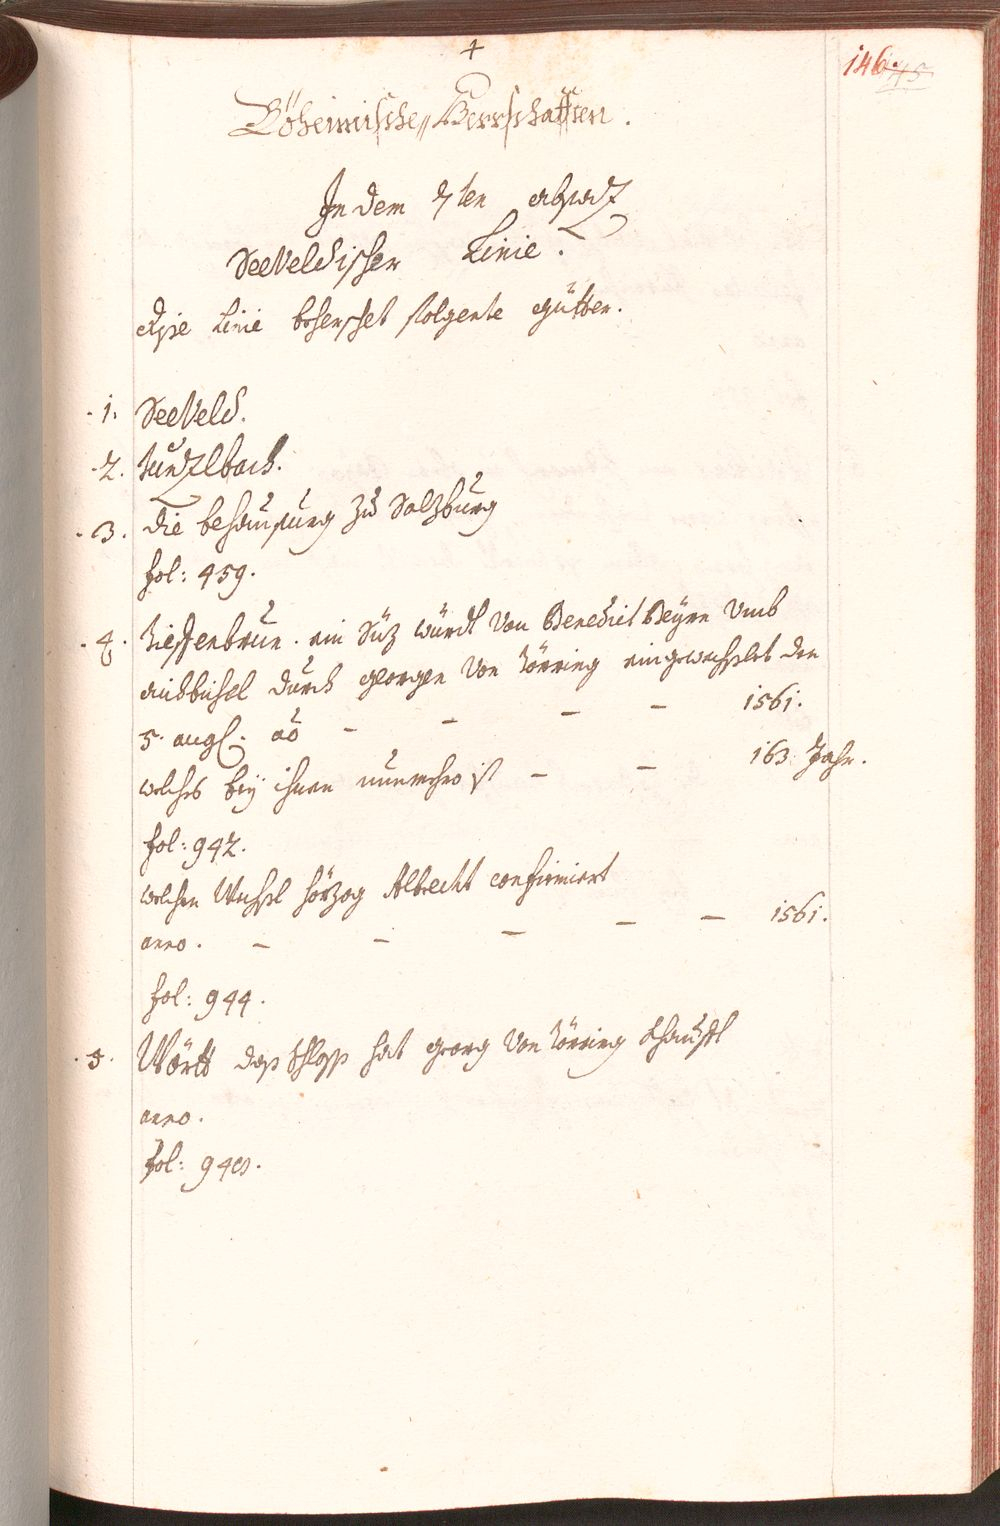 4
146. 45
Böheimische Herrschafften.
In dem 7ten absatz
Seeveldischer Linie.
Linie beherschet folgente gütter.
1. Seeveld.
2. Kunzlbach.
3. die behausung zu Salzburg
fol: 459.
4. Tieffenbrun. ein Süz würdt von Benedict Beyrn Umb
durch georgen von Törring eingewechslet den
5. augs. ao - - - - 1561.
welches bey ihnen nunmehro ist - - 163 Jahr.
fol: 942.
welchen Wechsl hörzog Albrecht confirmiert
anno. - - - - - 1561.
fol: 944.
5. Wörth daß schloß hat georg von Törring khaufft
anno.
fol: